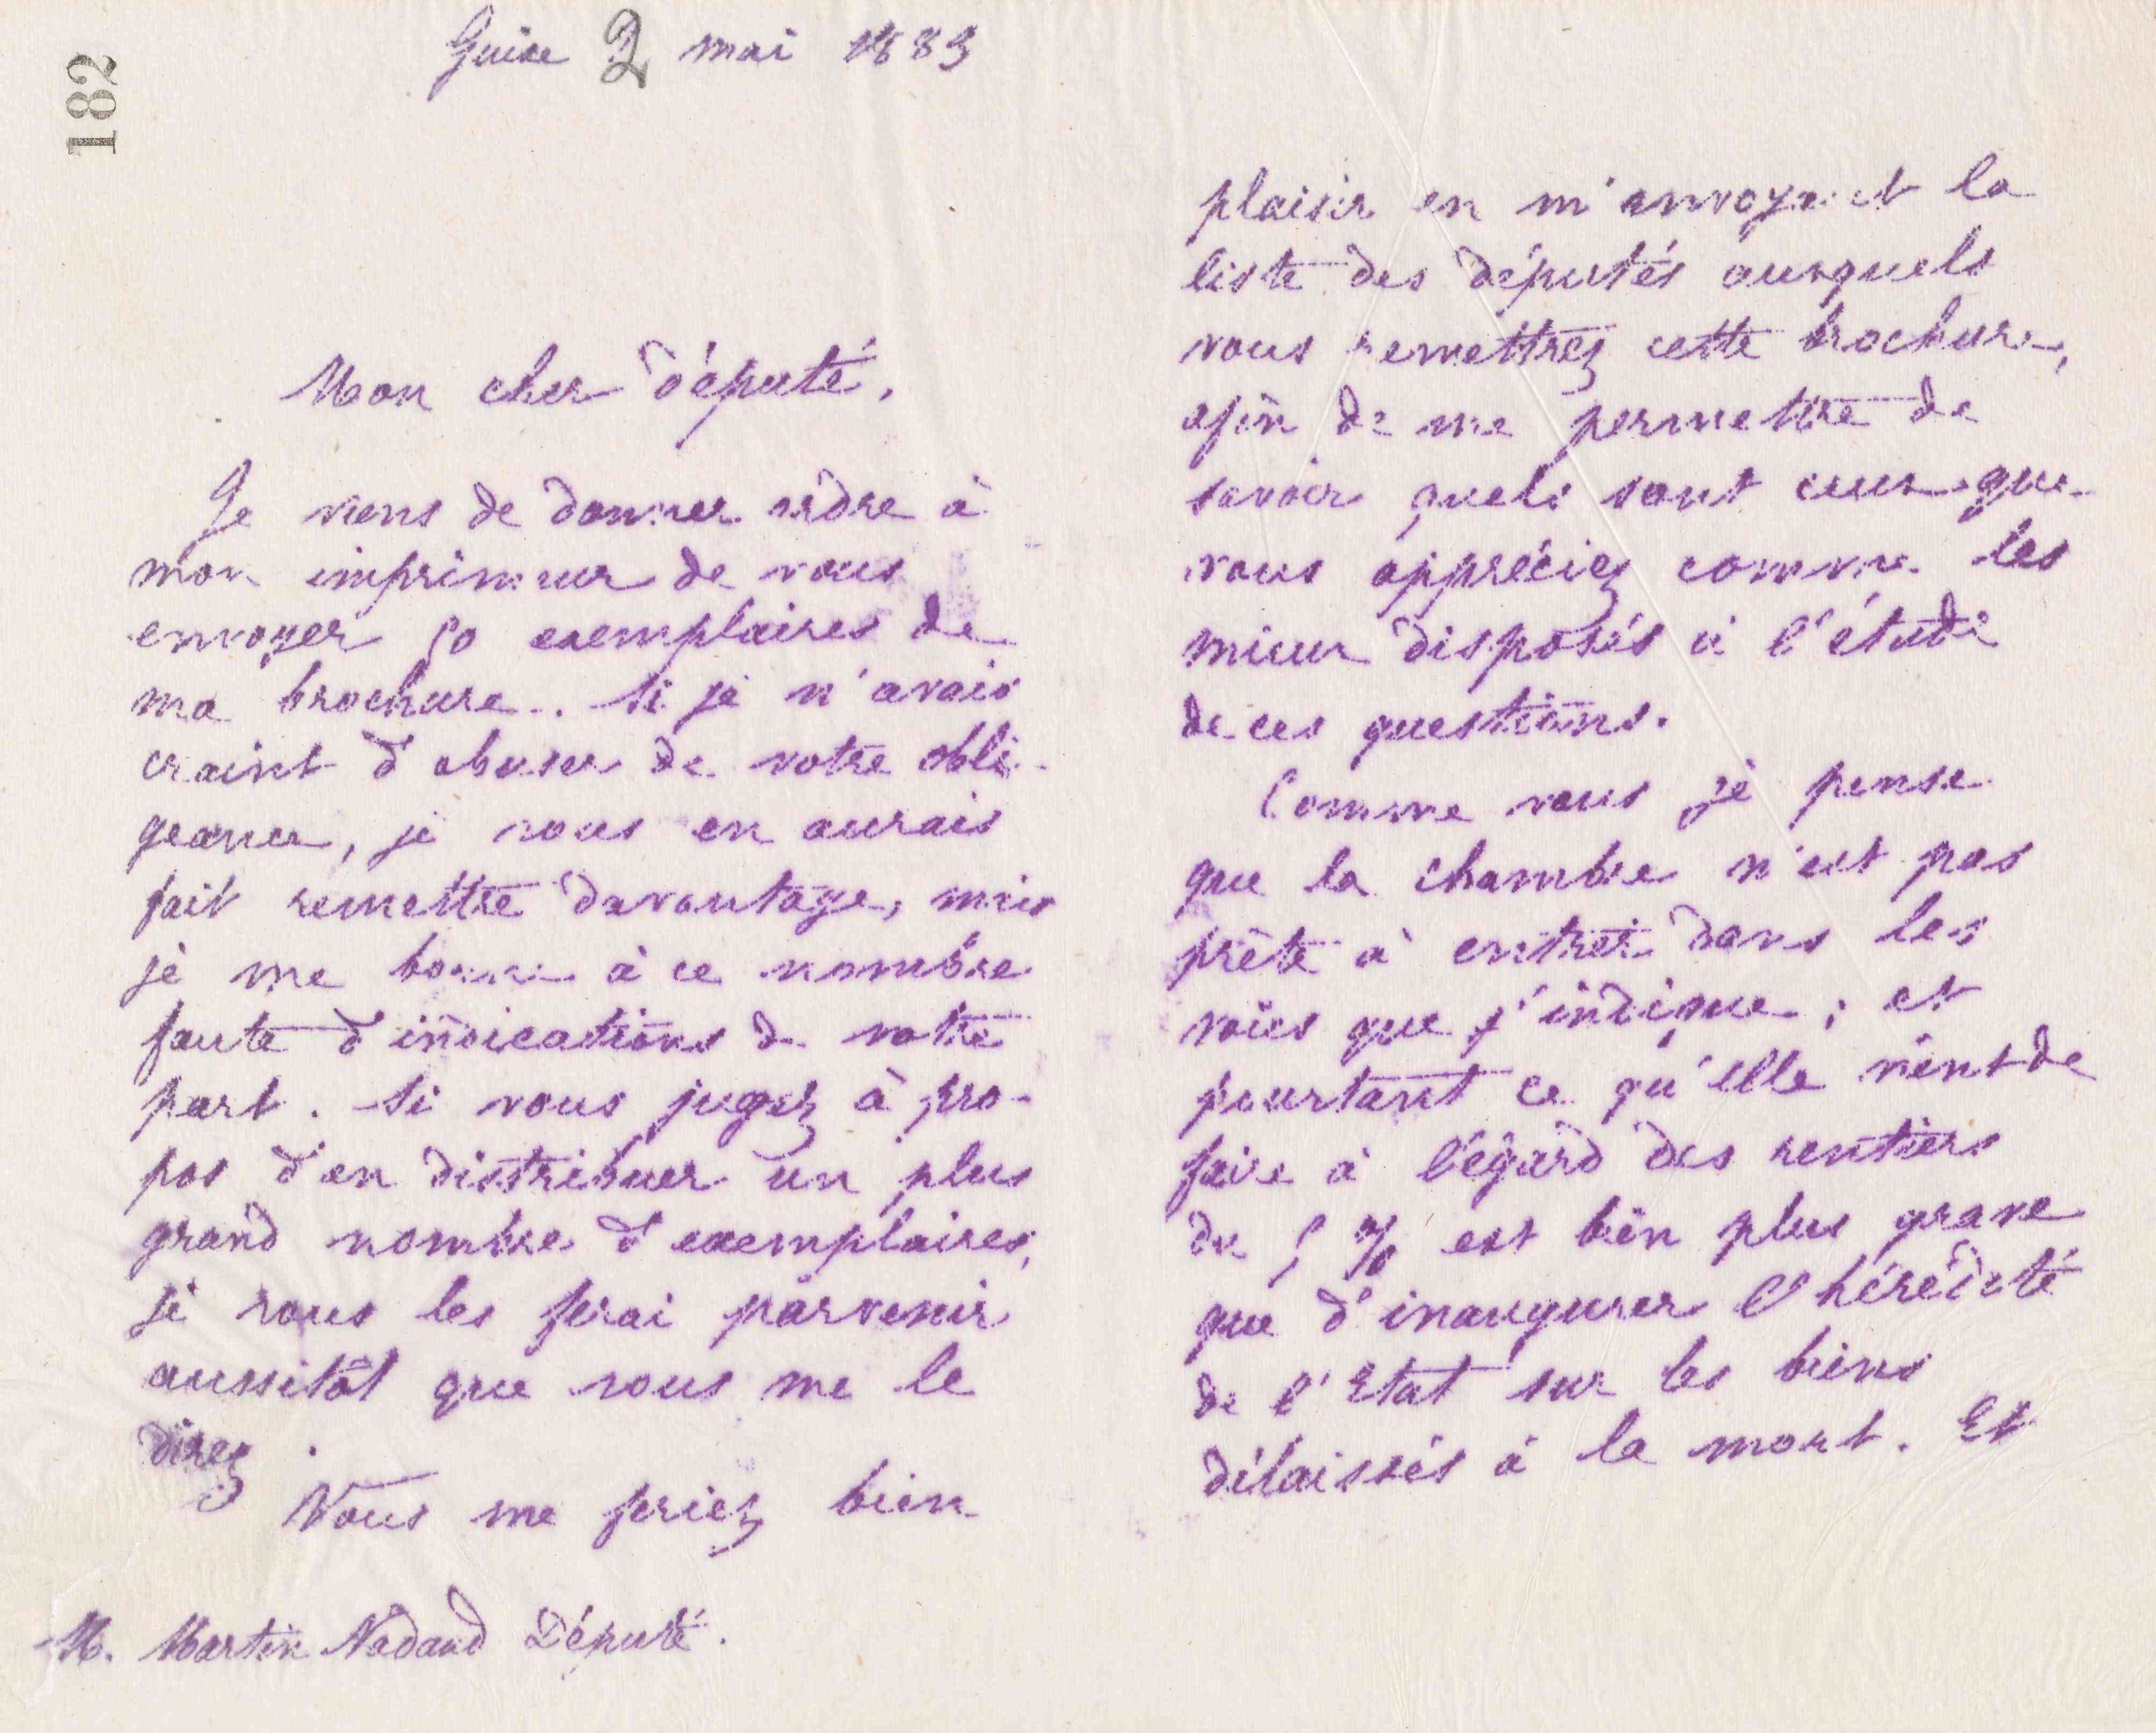 182
Guise 2 mai 1883
Mon cher député,
Je viens de donner ordre à
mon imprimeur de vous
envoyer 50 exemplaires de
ma brochure. Si je n'avais
craint d'abuser de votre obli-
geance, je vous en aurais
fait remettre davantage, mais
je me borne à ce nombre
faute d'indications de votre
part. Si vous jugez à pro-
pos d'en distribuer un plus
grand nombre d'exemplaires,
je vous les ferai parvenir
aussitôt que vous me le
direz.
Vous me feriez bien
M. Martin Nadaud Député.
plaisir en m'envoyant la
liste des députés auxquels
vous remettrez cette brochure,
afin de me permettre de
savoir quels sont ceux que
vous appréciez comme les
mieux disposés à l'étude
de ces questions.
Comme vous je pense
que la chambre n'est pas
prête à entrer dans les
voies que j'indique ; et
pourtant ce qu'elle vient de
faire à l'égard des rentiers
du 5 % est bien plus grave
que d'inaugurer l'hérédité
de l'Etat sur les biens
délaissés à la mort. Et